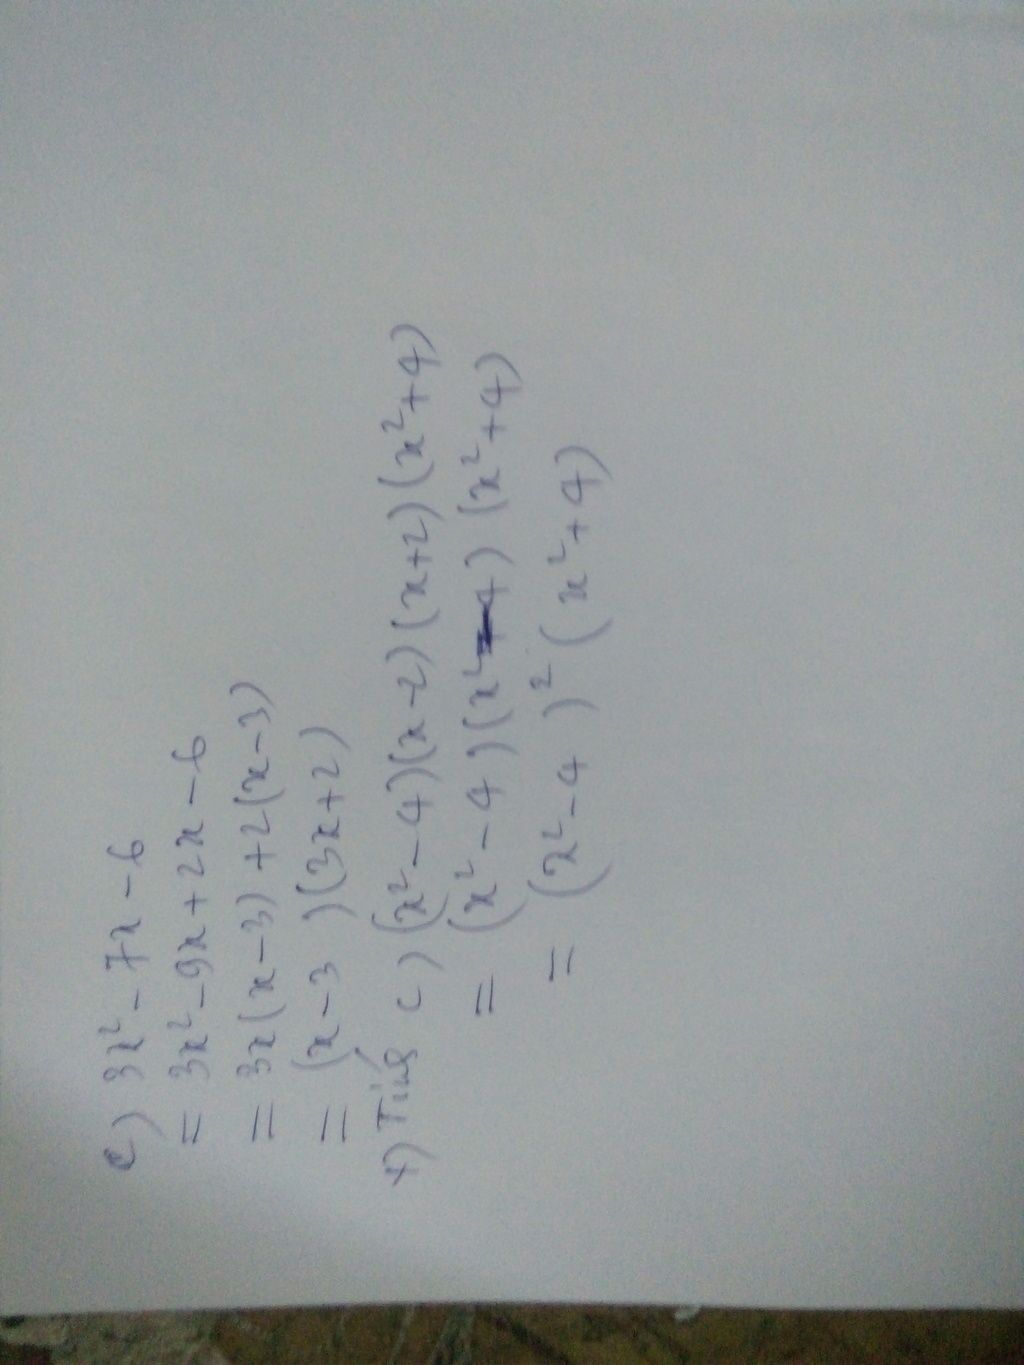 c) 3x² - 7x - 6
= 3x² - 9x + 2x - 6
= 3x(x - 3) + 2(x - 3)
= (x - 3)(3x + 2)
+) Tính c) (x² - 4)(x - 2)(x + 2)(x² + 4)
= (x² - 4)(x² - 4)(x² + 4)
= (x² - 4)² (x² + 4)